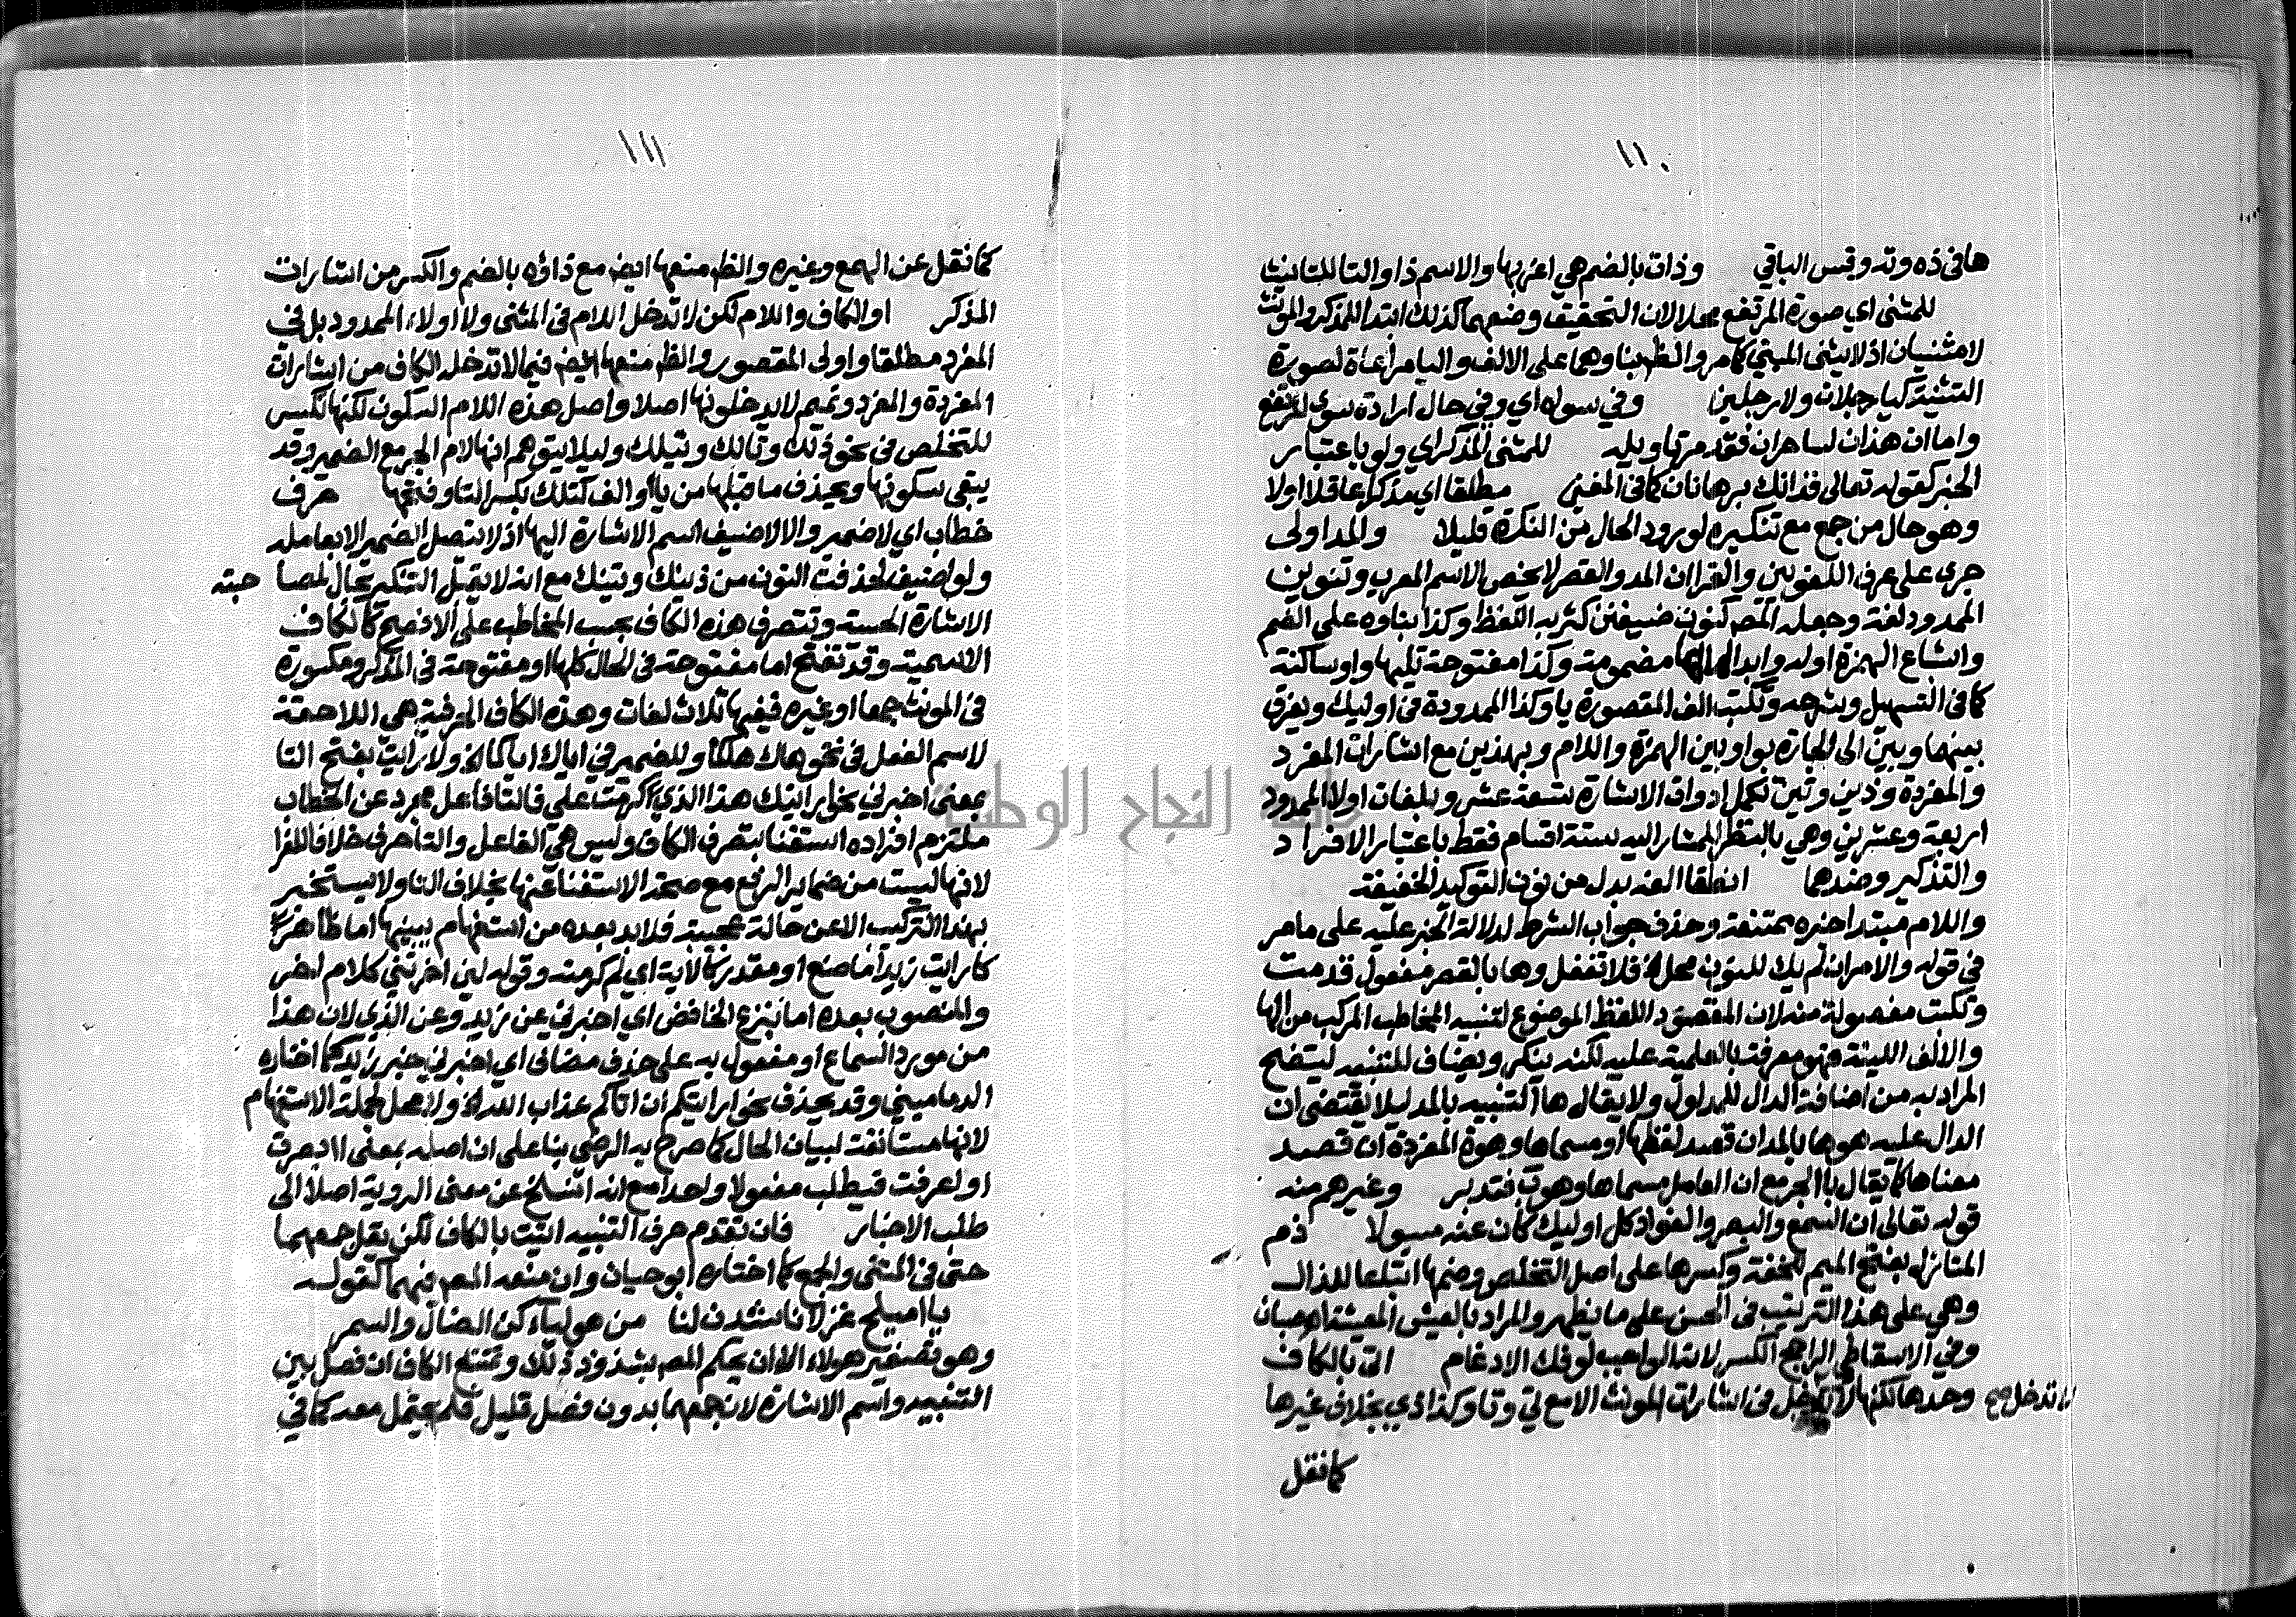 ١١٠
ها في ذه وته وقس الباقي وذات بالضم هي اغربها والاسم ذا والتا للتانيث
للمثنى اي صورة المرتفع محلا لان التحقيق وضعهما كذلك ابتدا للمذكر والمونث
لا مثنيان اذ لا يثنى المبني كما مر والظ بناوهما على الالف واليا مراعاة لصورة
التثنية كيا رجلان ولا رجلين وفي سواه اي وفي حال ارادة سوى المرتفع
واما ان هذان لساحران فقد مرتاويله للمثنى المذكر اي ولو باعتبار
الخبر كقوله تعالى فذانك برهانان كما في المغني مطلقا اي مذكرا عاقلا اولا
وهو حال من جمع مع تنكيره لورود الحال من النكرة قليلا والمد اولى
جرى على عرف اللغويين والقرا ان المد والقصر لا يخص الاسم المعرب وتنوين
الممدود لغة وجعله المص كنون ضيفن كثر به اللفظ وكذا بناوه على الضم
واشباع الهمزة اوله وابدالها مضمومة وكذا مفتوحة تليها واو ساكنة
كما في التسهيل وشرحه وتكتب الف المقصورة يا وكذا الممدودة في اوليك ويفرق
بينها وبين الى الجارة بواو بين الهمزة واللام وبهذين مع اشارات المفرد
والمفردة وذين وتين تكمل ادوات الاشارة تسعة عشر وبلغات اولا الممدود
اربعة وعشرين وهي بالنظر للمشار اليه ستة اقسام فقط باعتبار الافراد
والتذكير وضدهما انطقا الفه بدل من نون التوكيد الخفيفة
واللام مبتدا خبره ممتنعة وحذف جواب الشرط لدلالة الخبر عليه على ما مر
في قوله والامر ان لم يك للنون محل فلا تغفل وها بالقصر مفعول قدمت
وتكتب مفصولة منه لان المقصود اللفظ الموضوع لتنبيه المخاطب المركب من الها
والالف اللينة فهو معرفة بالعلمية عليه لكنه ينكر ويضاف للتنبيه ليتضح
المراد به من اضافة الدال للمدلول ولا يقال هاآ التنبيه بالمد ليلا يقتضي ان
الدال عليه هو ها بالمد ان قصد لفظها او مسماها وهو ه المفردة ان قصد
معناها كما يقال با الجر مع ان العامل مسماها وهو ب فتدبر وغيرهم منه
قوله تعالى ان السمع والبصر والفواد كل اوليك كان عنه مسولا ذم
المنازل بفتح الميم للخفة وكسرها على اصل التخلص وضمها اتباعا للذال
وهي على هذا الترتيب في الحسن على ما يظهر والمراد بالعيش المعيشة اه صبان
وفي الاسقاطي الراجح الكسر لانه الواجب لو فك الادغام اتى بالكاف
وحدها لكنها لا تدخل في اشارات المونث الا مع تي وتا وكذا ذي بخلاف غيرها
لا تدخل صح
كما نقل
١١١
كما نقل عن الهمع وغيره والظ منعها ايض مع ذاؤه بالضم والكسر من اشارات
المذكر او الكاف واللام لكن لا تدخل اللام في المثنى ولا اولاء الممدود بل في
المفرد مطلقا واولى المقصور والظ منعها ايض فيما لا تدخله الكاف من اشارات
المفردة والمفرد وتميم لا يدخلونها اصلا واصل هذه اللام السكون لكنها تكسر
للتخلص في نحو ذلك وتالك وتيلك وليلا يتوهم انها لام الجر مع الضمير وقد
يبقى سكونها ويحذف ما قبلها من يا او الف كتلك بكسر التا وفتحها حرف
خطاب اي لا ضمير والا لاضيف اسم الاشارة اليها اذ لا يتصل الضمير الا بعامله
ولو اضيف لحذفت النون من ذينك وتينك مع انه لا يقبل التنكير بحال لمصاحبته
الاشارة الحسية وتتصرف هذه الكاف بحسب المخاطب على الافصح كالكاف
الاسمية وقد تفتح اما مفتوحة في الحال كلها او مفتوحة في المذكر ومكسورة
في المونث جمعا او غيره ففيها ثلاث لغات وهذه الكاف الحرفية هي اللاحقة
لاسم الفعل في نحو هاك هاكما وللضمير في اياك اياكما ولارايت بفتح التا
بمعنى اخبرني نحو ارايتك هذا الذي كرمت علي فالتا فاعل مجرد عن الخطاب
ملتزم افراده استغنا بتصرف الكاف وليس هي الفاعل والتا حرف خلافا للفرا
لانها ليست من ضماير الرفع مع صحة الاستغنا عنها بخلاف التا ولا يستخبر
بهذا التركيب الا عن حالة عجيبة فلا بد بعده من استفهام يبينها اما ظاهر
كارايت زيدا ما صنع او مقدر كالاية اي لم كرمته وقوله لين اخرتني كلام اخر
والمنصوب بعده اما بنزع الخافض اي اخبرني عن زيد وعن الذي لان هذا
من مورد السماع او مفعول به على حذف مضاف اي اخبرني خبر زيد كما اختاره
الدماميني وقد يحذف نحو ارايتكم ان اتاكم عذاب الله ولا محل لجملة الاستفهام
لانها مستانفة لبيان الحال كما صرح به الرضي بنا على ان اصله بمعنى ا ادعرف
او اعرفت فيطلب مفعولا واحدا مع انه انسلخ عن معنى الروية اصلا الى
طلب الاخبار فان تقدم حرف التنبيه اتيت بالكاف لكن يقل جمعهما
حتى في المثنى والجمع كما اختاره ابو حيان وان منعه المص فيهما كقوله
يا اميلح غزلانا شدن لنا من هوليائكن الضال والسمر
وهو تصغير هولاء الا ان يحكم المص بشذوذ ذلك وتمتنع الكاف ان فصل بين
التنبيه واسم الاشارة لان جمعهما بدون فصل قليل فلم يحتمل معه كما في